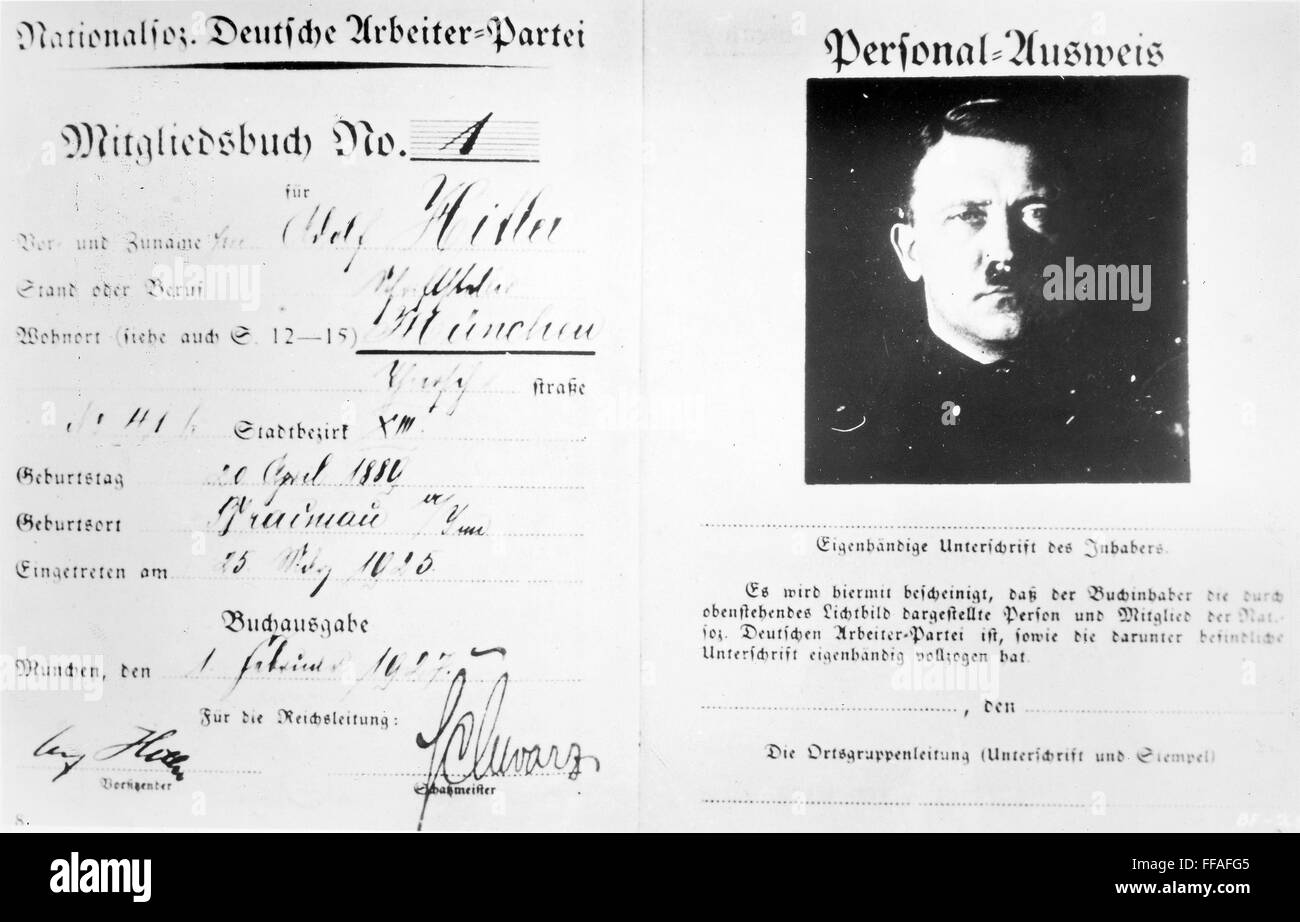 Nationalsoz. Deutsche Arbeiter-Partei
Mitgliedsbuch No. 1
für
Vor- und Zuname Adolf Hitler
Stand oder Beruf
Wohnort (siehe auch S. 12—15) München
straße
41 Stadtbezirk XIII
Geburtstag 20 April 1889
Geburtsort Braunau
Eingetreten am 25. 1925
Buchausgabe
München, den 1. Februar 1927.
Für die Reichsleitung:
Hitler Schwarz
Vorsitzender Schatzmeister
8.
Personal-Ausweis
Eigenhändige Unterschrift des Inhabers.
Es wird hiermit bescheinigt, daß der Buchinhaber die durch
obenstehendes Lichtbild dargestellte Person und Mitglied der Nat.-
soz. Deutschen Arbeiter-Partei ist, sowie die darunter befindliche
Unterschrift eigenhändig vollzogen hat.
, den
Die Ortsgruppenleitung (Unterschrift und Stempel)
alamy
Image ID: FFAFG5
www.alamy.com